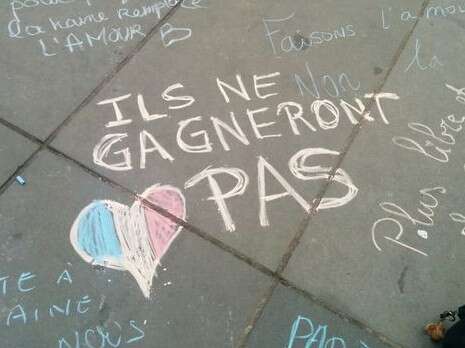 la haine remplace
L'AMOUR
Faisons l'amour
Non
la
ILS NE
GAGNERONT
PAS
Plus libre
TE À
AINE
NOUS
PAR